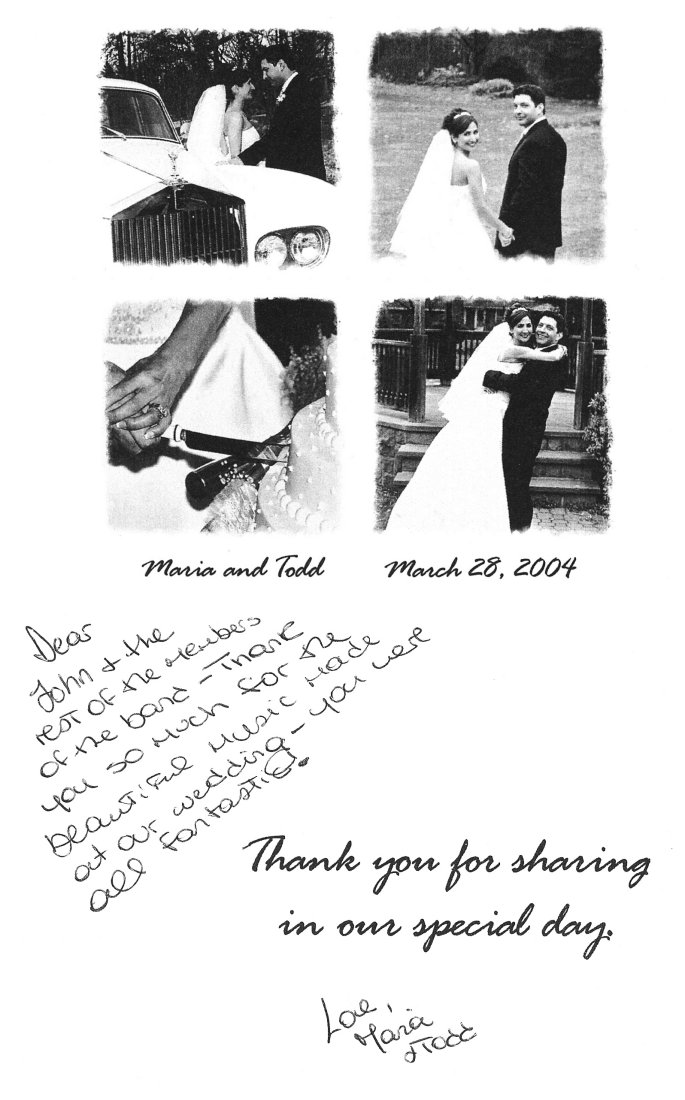 Maria and Todd
March 28, 2004
Dear
John & the
rest of the Members
of the band - Thank
you so much for the
beautiful music made
at our wedding - you were
all fantastic!
Thank you for sharing
in our special day.
Love,
Maria
& Todd